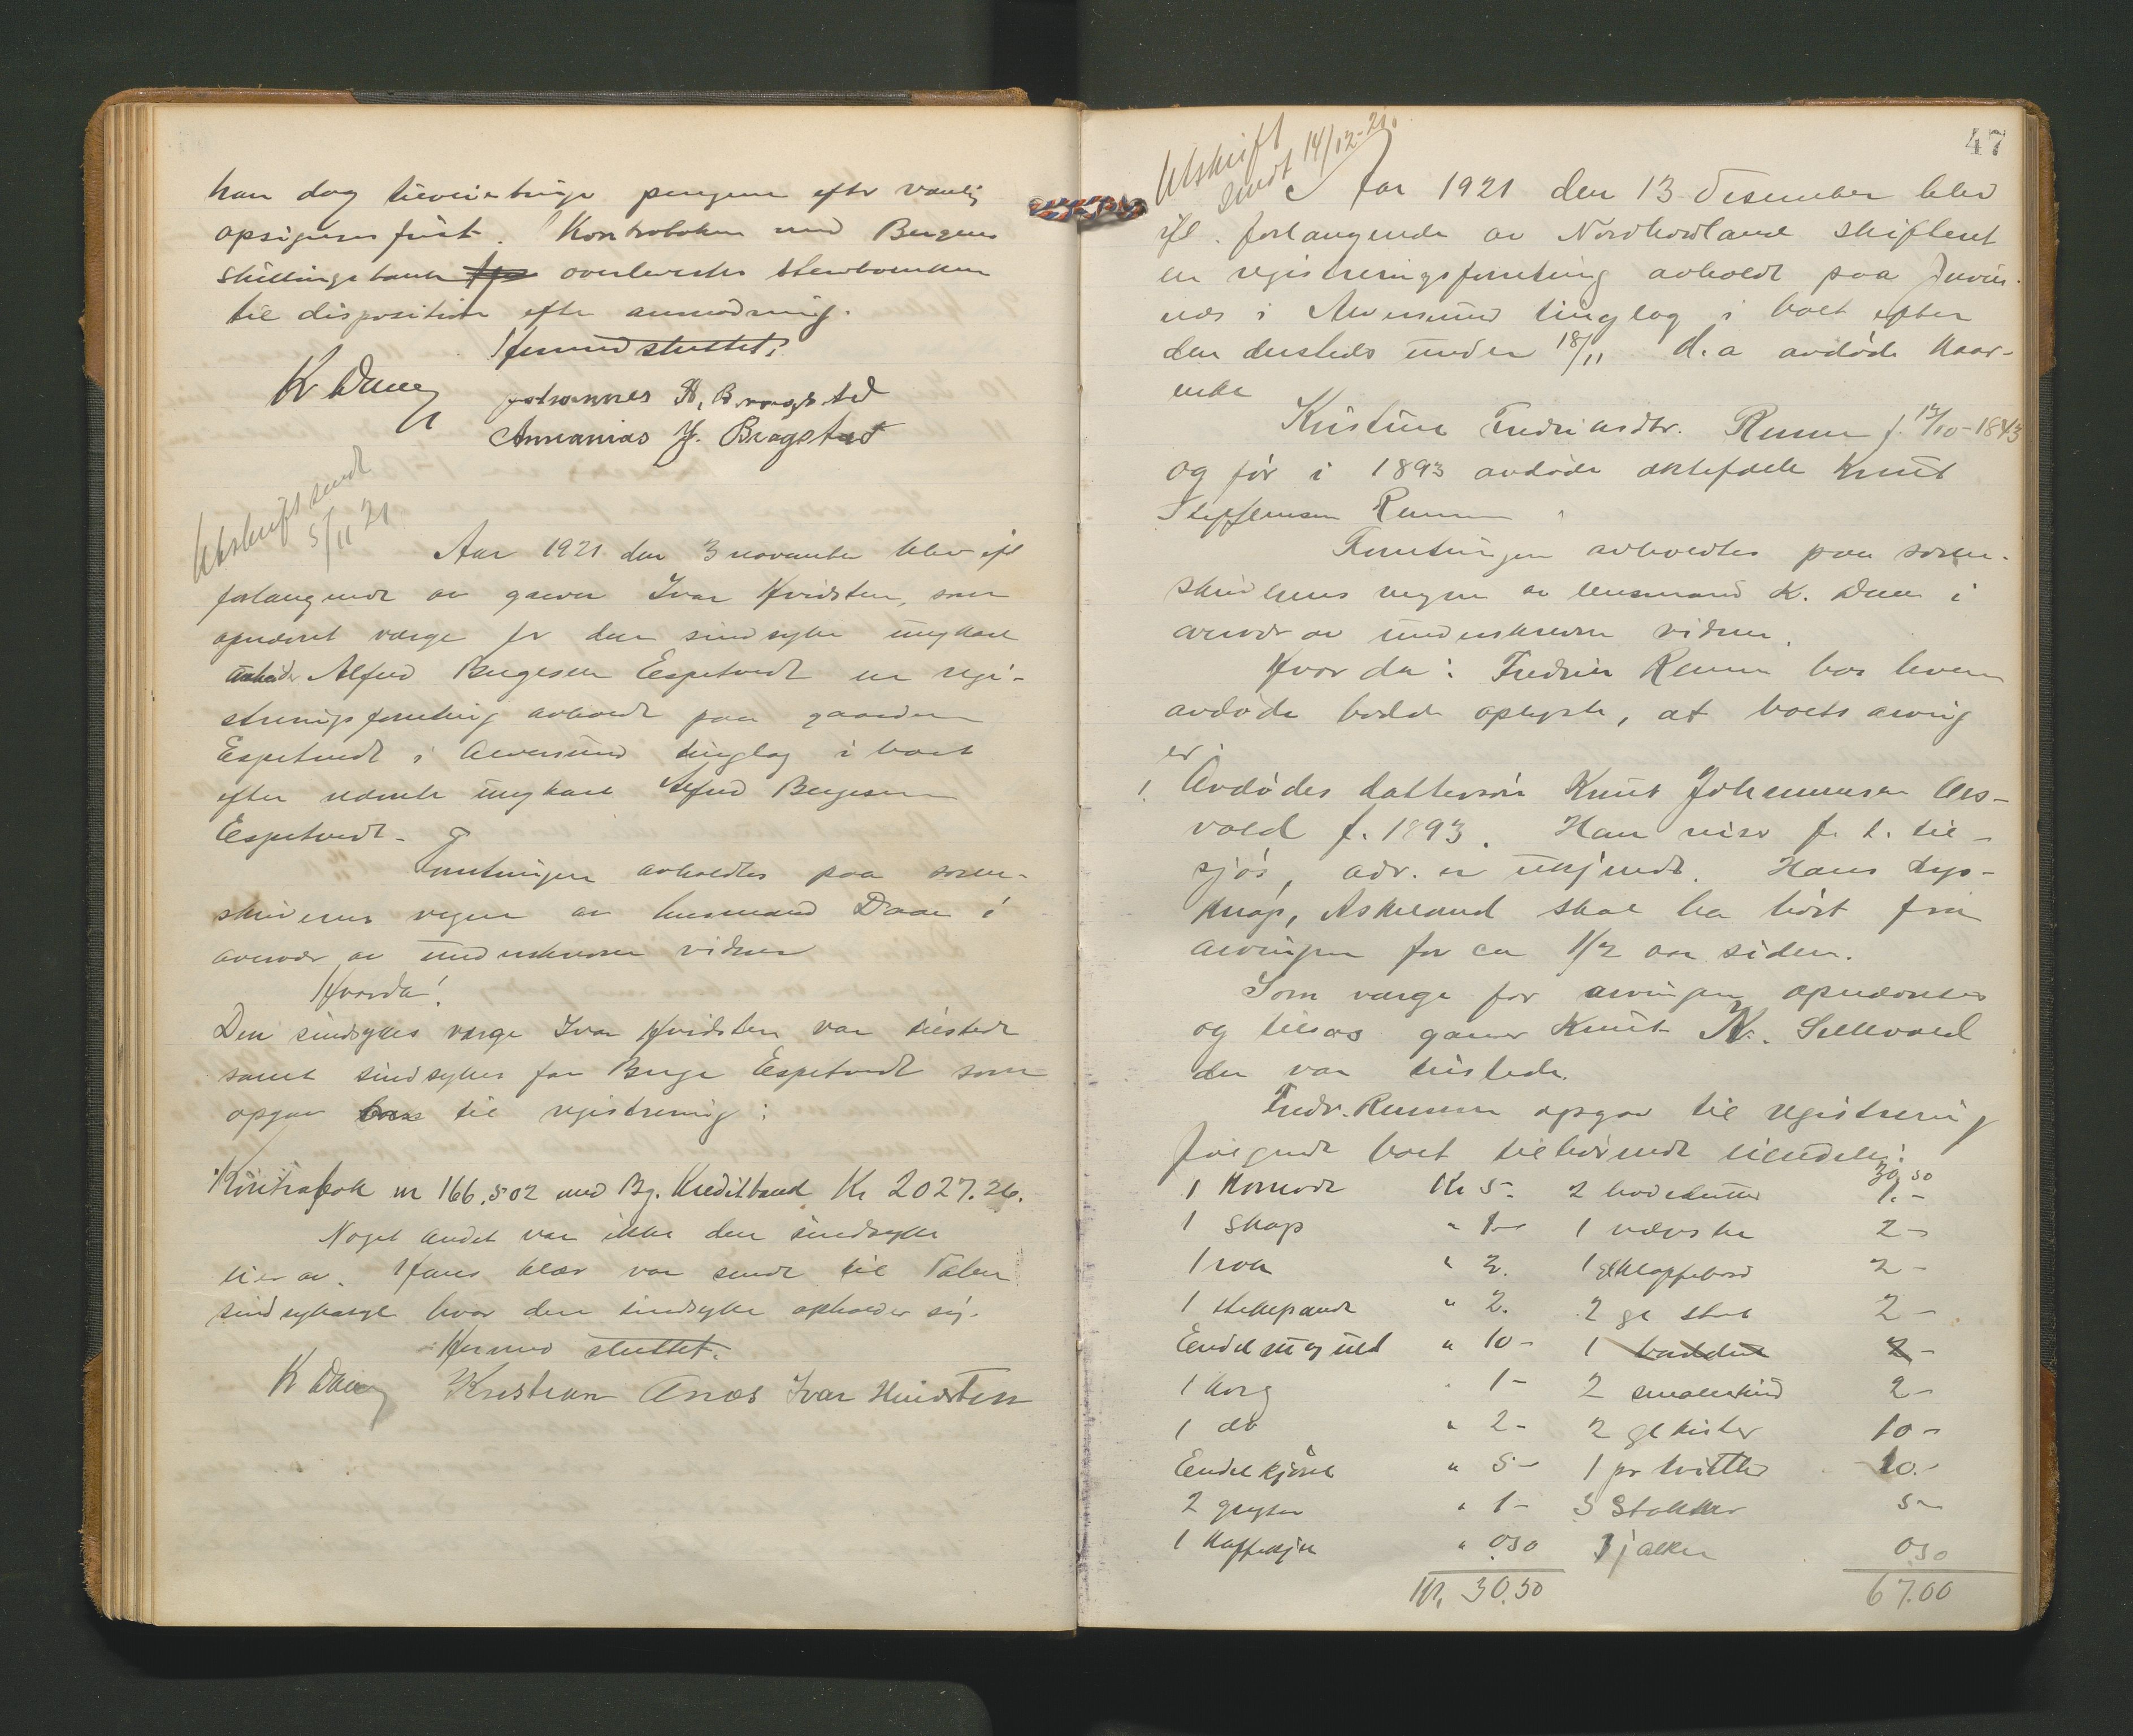 han dog tilveiebringe pengene efter vanlig
opsigelses frist. Kontraboken med Bergens
skillingsbank overleveredes
til disposition efter anmodning.
Hermed sluttet.
K Daae
Johannes K. Bragstad
Annanias J. Bragstad
Utskrift sendt
5/11 21
Aar 1921 den 3 november blev ifl
forlangende av gaver Ivar Hvidsten, som
opnævnt værge for den sindsyke ungkarl
arbeider Alfred Bergesen Espetvedt en regi-
streringsforretning avholdt paa gaarden
Espetvedt i Alversund tinglag i boet
efter nævnte ungkarl Alfred Bergesen
Espetvedt.
Forretningen avholdtes paa soren-
skriverens vegne av lensmand Daae i
overvær av underskrevne vidner
Hvorda!
Den sindsykes værge Ivar Hvidsten var tilstede
samt sindsykes far Berge Espetvedt som
opgav til registrering:
Kontrabok nr 166.502 med Bg. Kreditbank Kr 2027.26.
Noget andet var ikke den sindsyke
eier av. Hans klær var sendt til
sindsykeasyl hvor den sindsyke opholder sig.
Hermed sluttet.
K Daae Kristian Araas Ivar Hvidsten
47
Utskrift
sendt 14/12-21.
Aar 1921 den 13 desember blev
ifl. forlangende av Nordhordland skifteret
en registreringsforretning avholdt paa
i Alversund tinglag i boet efter
den dersteds under 18/11 d.a avdøde kaar-
enke
Kristine Fredriksdtr. Remme f. 13/10-1843
og før i 1893 avdøde ektefælle Knut
Steffensen Remme
Forretningen avholdtes paa soren-
skriverens vegne av lensmand K. Daae i
overvær av underskrevne vidner.
Hvor da: Fredrik Remme hos hvem
avdøde bodde oplyste, at boets arving
er:
1. Avdødes dattersøn Knut Johannessen
f. 1893. Han reiser f. t. til-
sjøs, adr. er ukjendt. Hans
Askeland skal ha hørt fra
arvingen for ca 1/2 aar siden.
Som værge for arvingen opnævntes
og tilsas gaver Knut K. Sellevold
der var tilstede.
Fredr. Remme opgav til registrering
følgende boet tilhørende eiendele:
30,50
1 Komode Kr 5- 2 1.-
1 Skap " 1- 1 vævste 2-
1 rok " 2. 1 klappebord 2-
1 stekepande " 2. 2 gl stole 2-
Endel uld " 10- 1 2-
1 korg " 1- 2 smaleskind 2-
1 do " 2- 2 gl kister 10-
Endel kjørel " 5- 1 pr 10.-
2 gryter " 1- 3 Stakker 5-
1 Kaffekjel " 0,50 0,50
Kr. 30,50 67.00